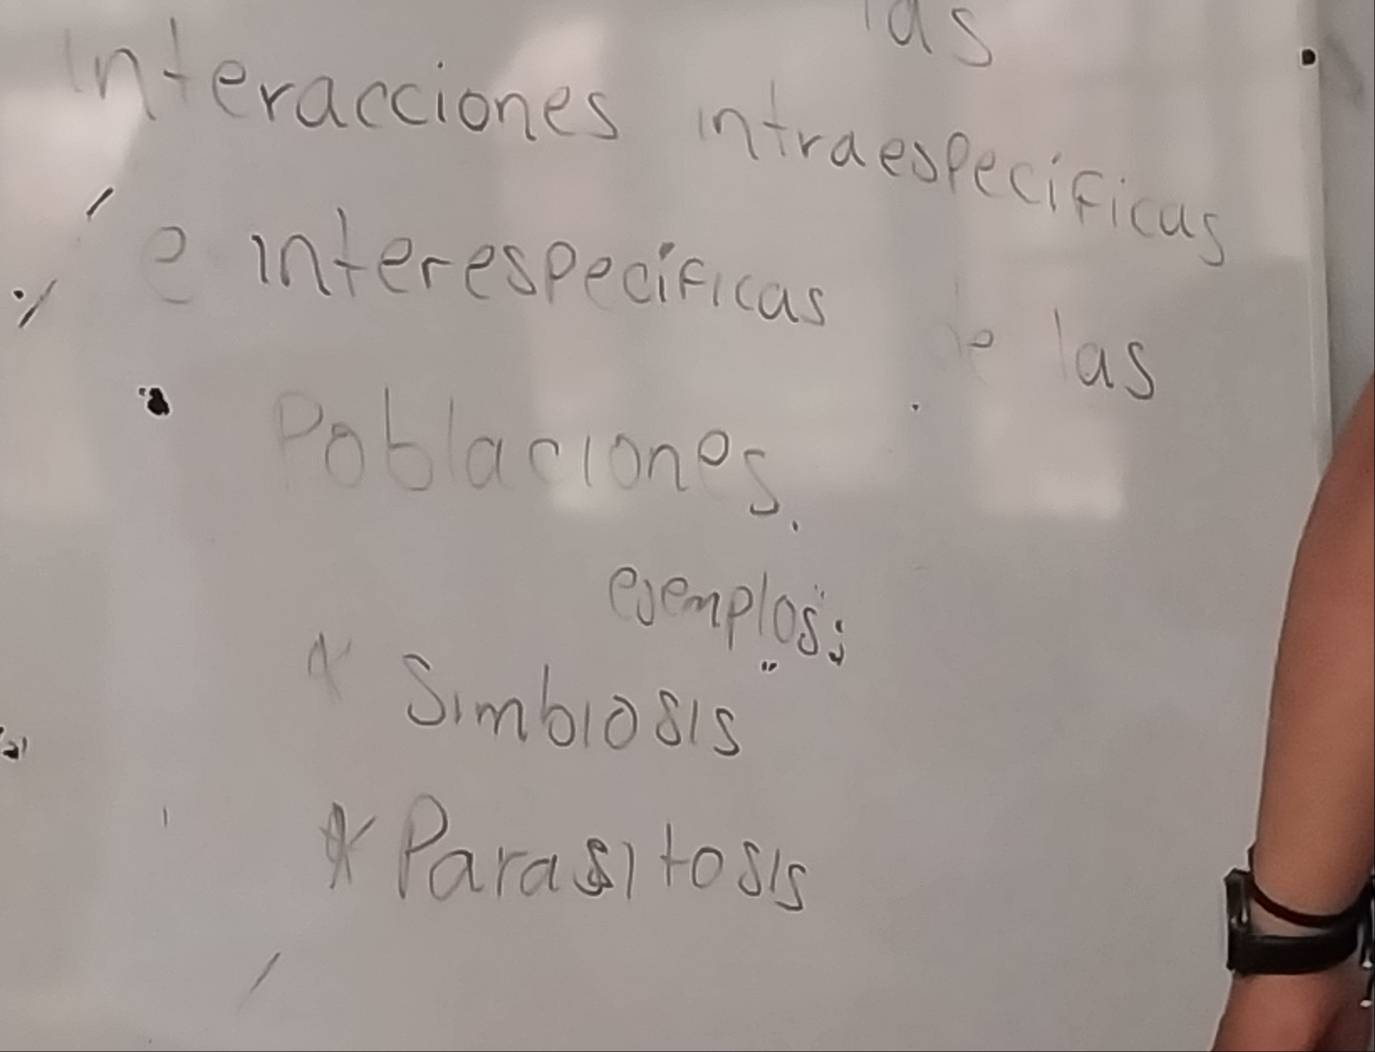 las
interacciones intraespecificas
e interespecificas de las
Poblaciones.
ejemplos:
* Simbiosis
* Parasitosis